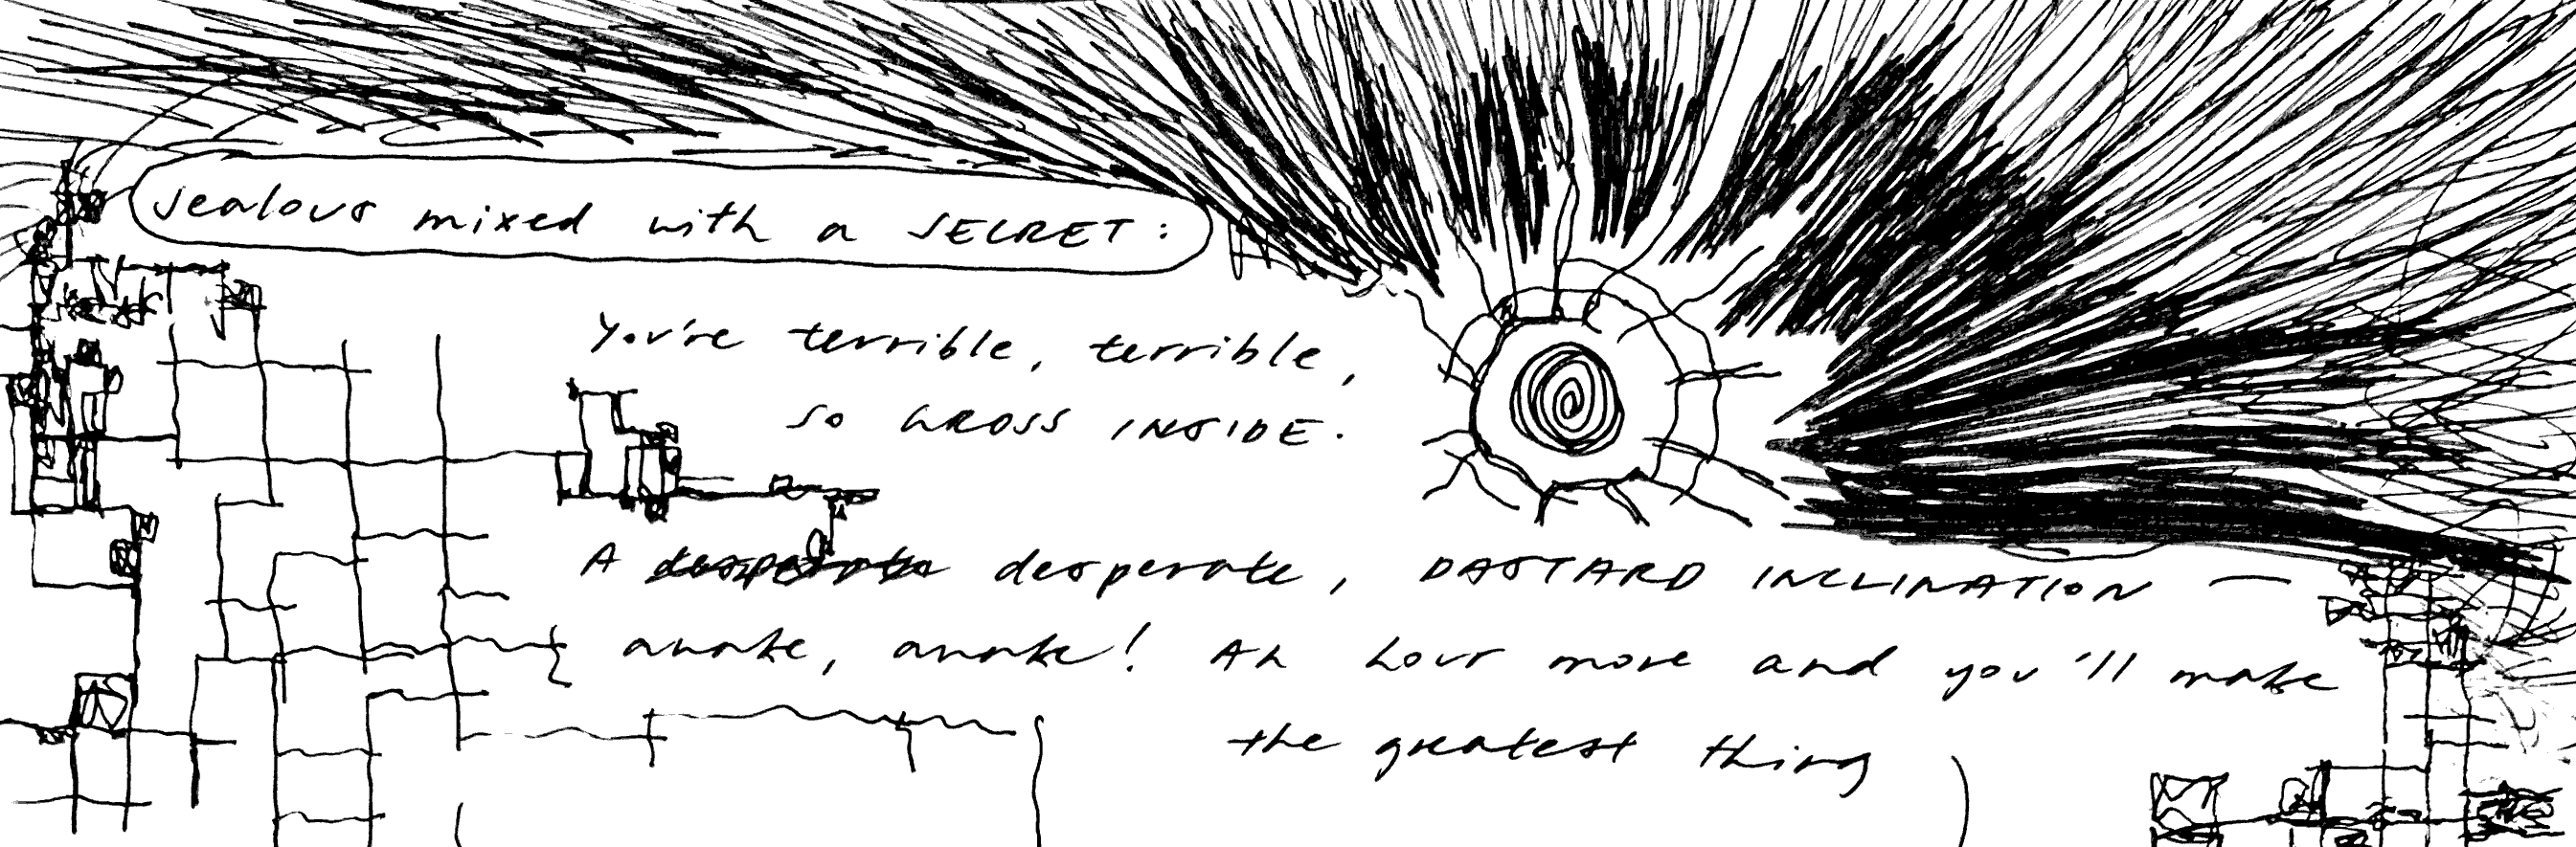 Jealous mixed with a SECRET:
You're terrible, terrible,
so GROSS INSIDE.
A desperate desperate, BASTARD INCLINATION —
awake, awake! An hour more and you'll make
the greatest thing